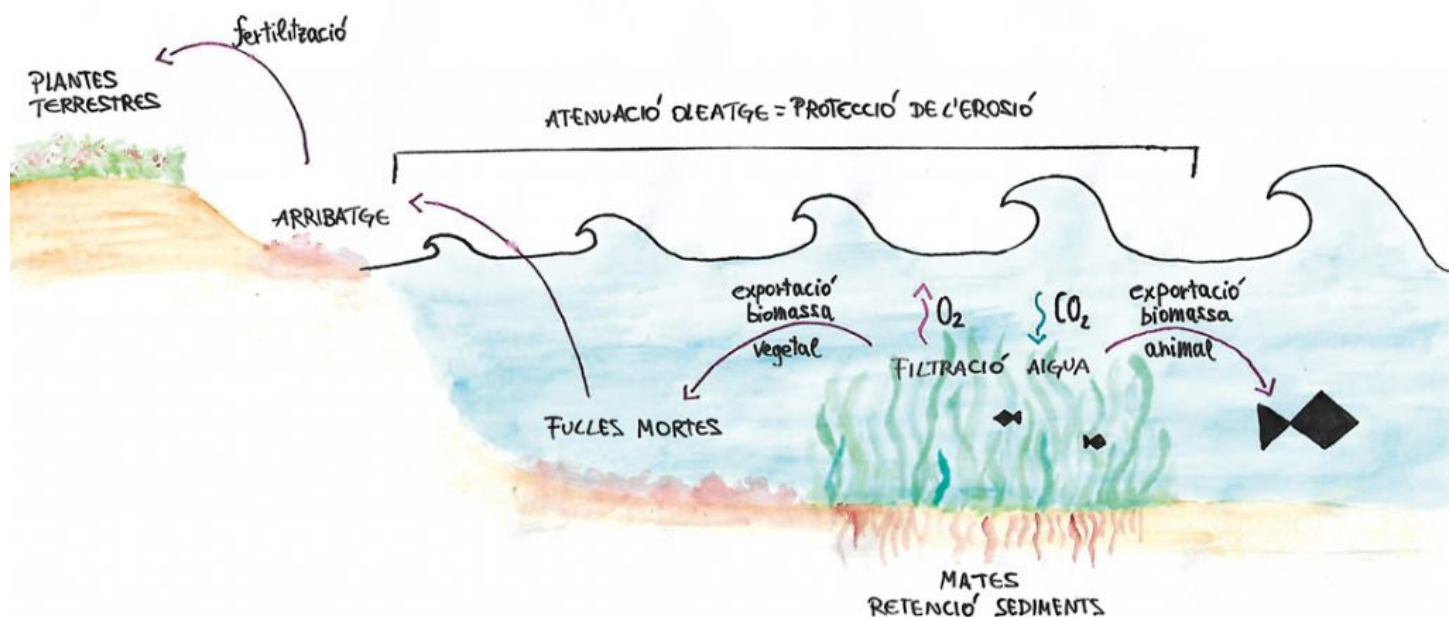 fertilització
PLANTES
TERRESTRES
ATENUACIÓ OLEATGE = PROTECCIÓ DE L'EROSIÓ
ARRIBATGE
exportació
biomassa
vegetal
O₂
CO₂
exportació
biomassa
animal
FILTRACIÓ AIGUA
FULLES MORTES
MATES
RETENCIÓ SEDIMENTS